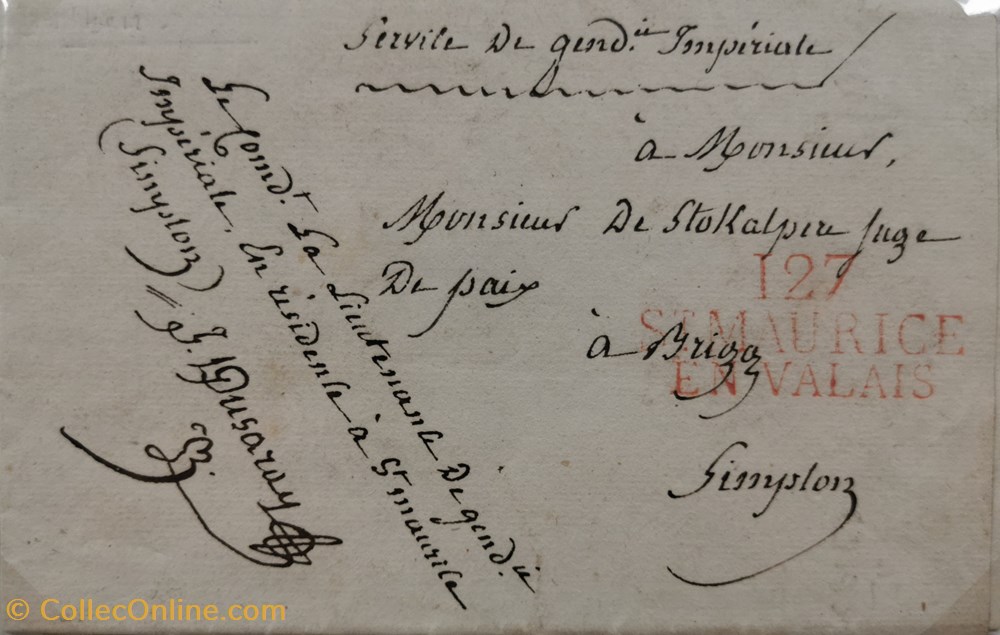 Servile De gend.ie Impériale
à Monsieur,
Monsieur De Stokalpere juge
De paix
à Brigg
Simplon
127
ST MAURICE
EN VALAIS
Le Comd.t La Lieutenance De gend.ie
Impériale, En résidence à St maurice
(Simplon)
© CollecOnline.com